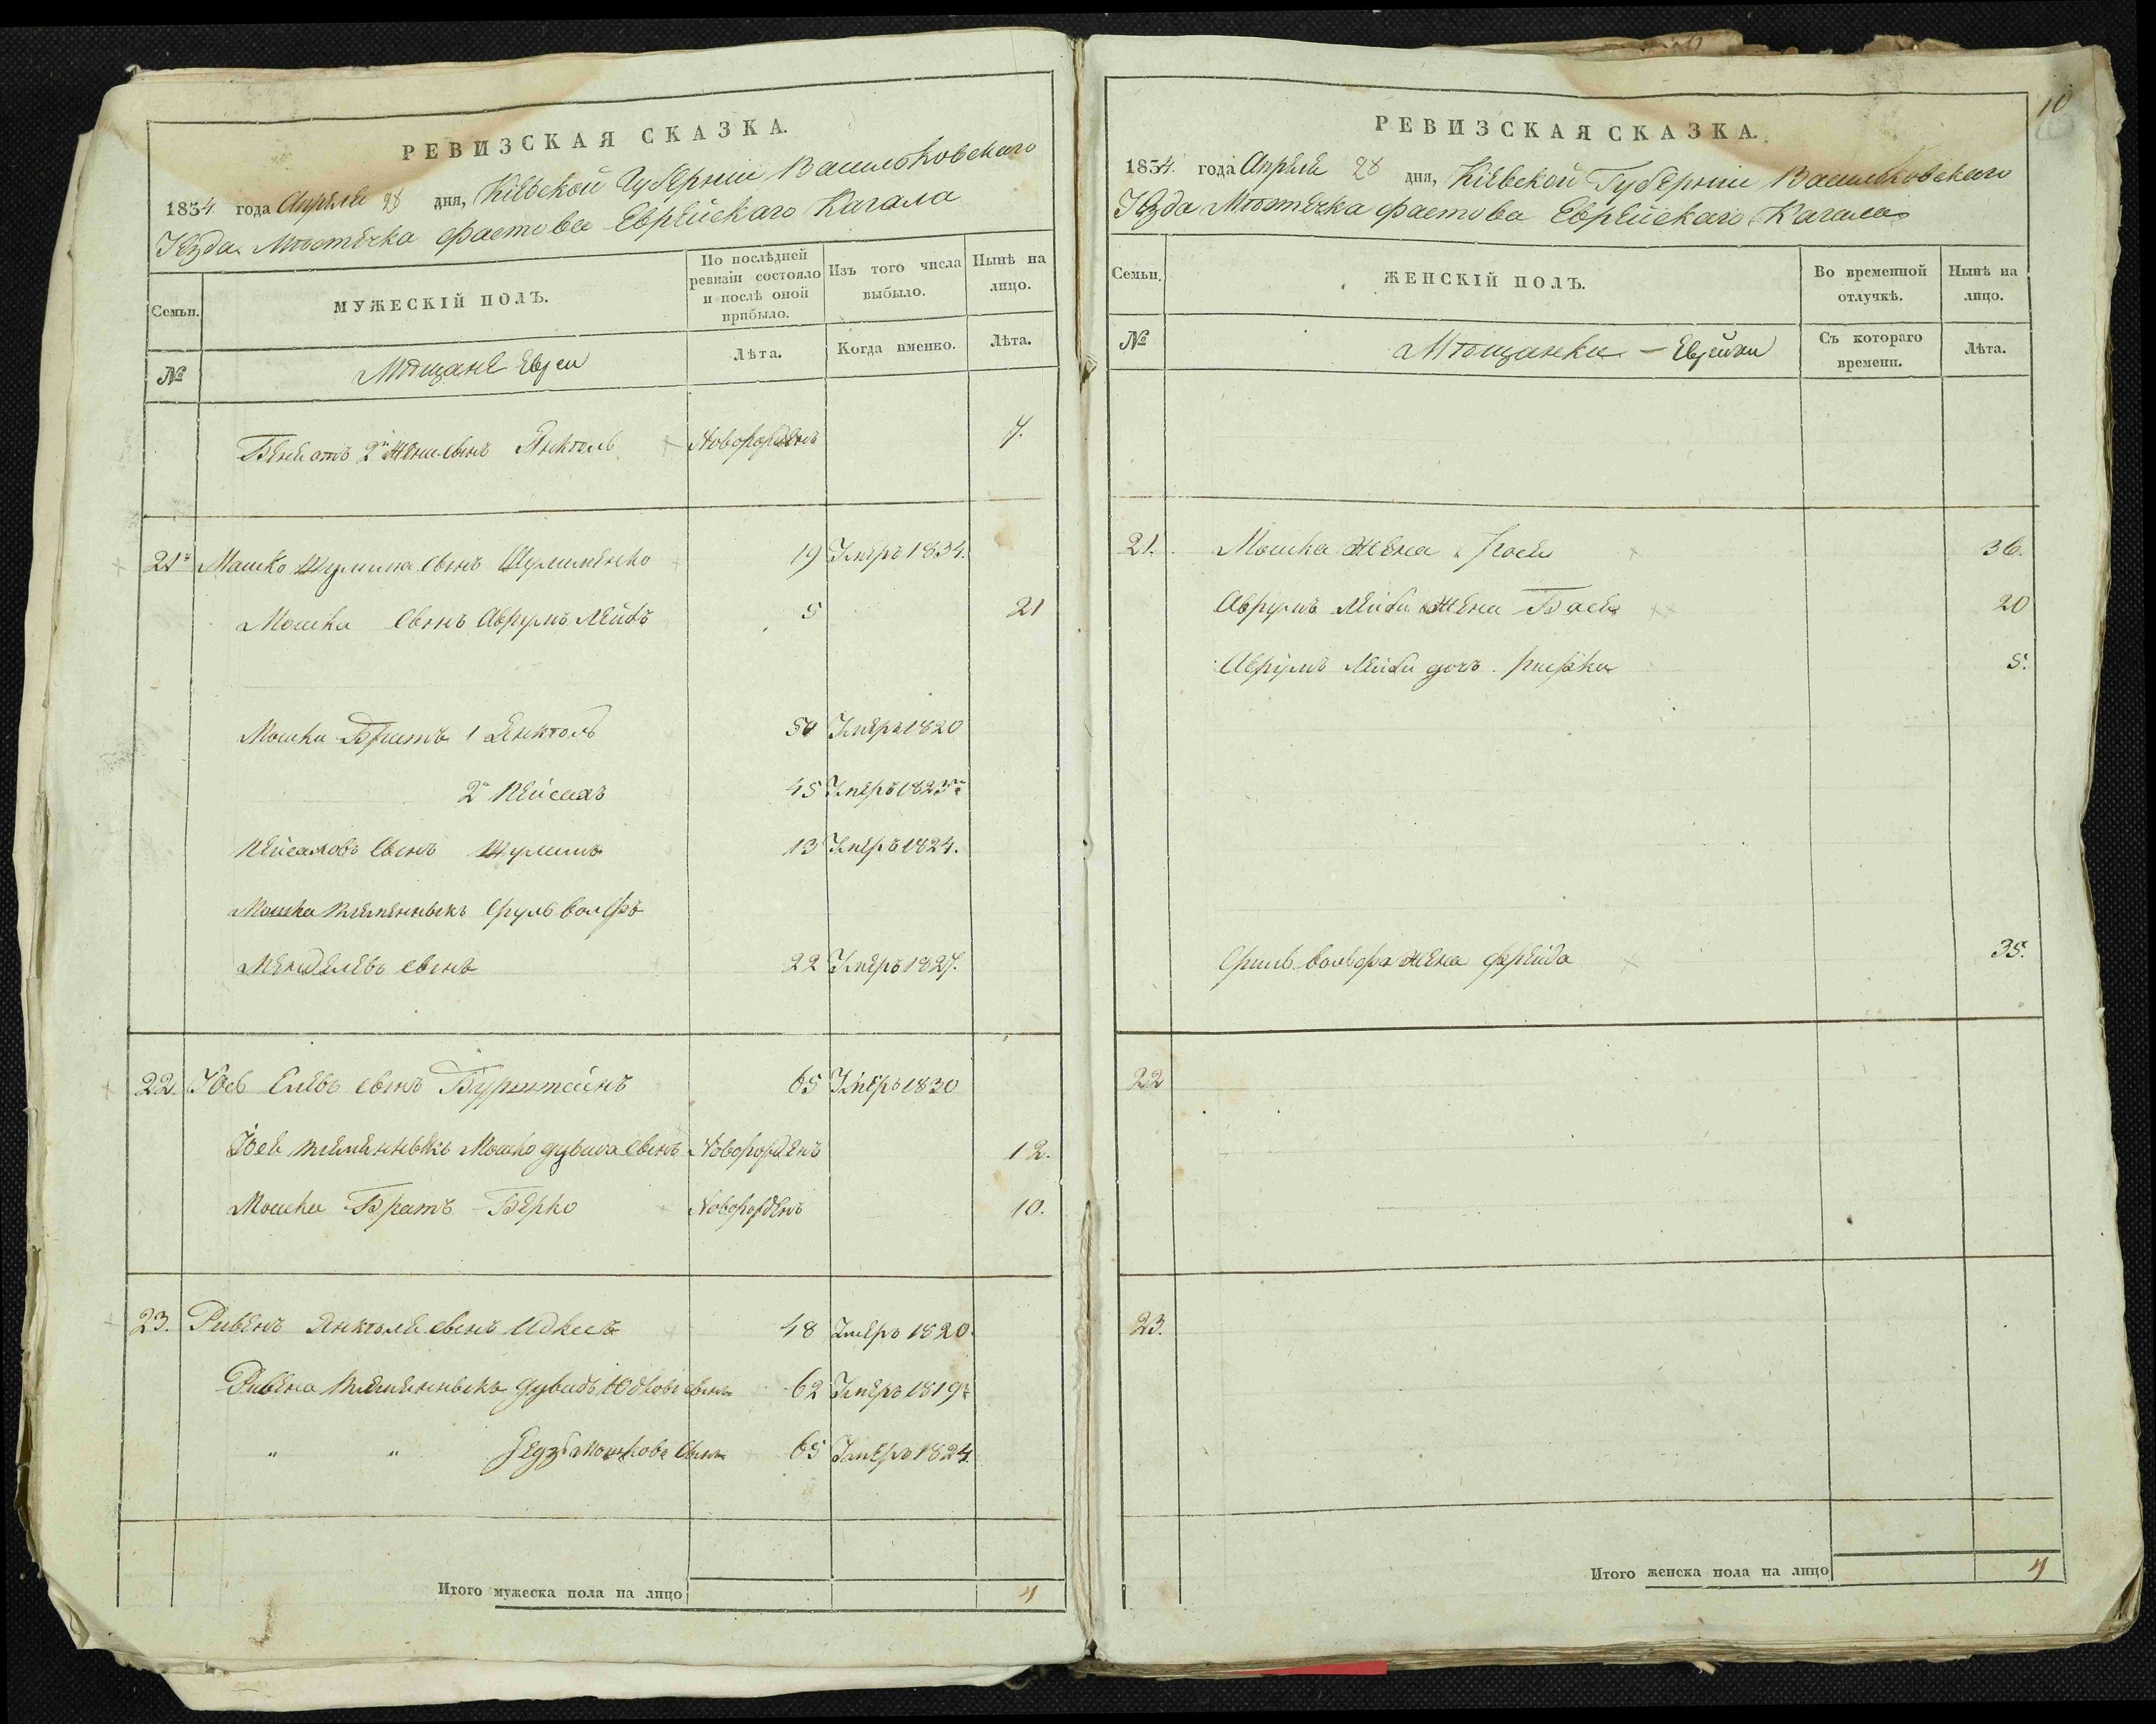 РЕВИЗСКАЯ СКАЗКА.
1834. года Апреля 28 дня, Кіевской Губерніи Васильковскаго
Уезда Мѣстечка Фастова Еврейскаго Кагала
Семьи.
МУЖЕСКІЙ ПОЛЪ.
По послѣдней ревизіи состояло и послѣ оной прибыло.
Изъ того числа выбыло.
Нынѣ на лицо.
№
Мѣщане Евреи
Лѣта.
Когда именно.
Лѣта.
отъ 2й жены сынъ Янкель Новорожденъ 7.
21й Мошко Шулима сынъ 19 Умеръ 1834.
Мошка сынъ Аврумъ Лейбъ 5 21
Мошка Братъ 1 Янкель 50 Умеръ 1820
2й Пейсахъ 45 Умеръ 1825го
Пейсаховъ сынъ Шулимъ 13 Умеръ 1824.
Мошка племянныкъ Сруль Вольфъ
Менделевъ сынъ 22 Умеръ 1827.
22. Іось сынъ Бурштейнъ 65 Умеръ 1830
Іося племянныкъ Мошко Дувида сынъ Новорожденъ 12.
Мошка Братъ Берко Новорожденъ 10.
23. Рувенъ Янкеля сынъ 48 Умеръ 1820.
Рувена племянныкъ Дувидъ Юдковъ сынъ 62 Умеръ 1819го
" " Мошковъ сынъ 65 Умеръ 1824.
Итого мужеска пола на лицо 4
10
РЕВИЗСКАЯ СКАЗКА.
1834. года Апреля 28 дня, Кіевской Губерніи Васильковскаго
Уезда Мѣстечка Фастова Еврейскаго Кагала
Семьи.
ЖЕНСКІЙ ПОЛЪ.
Во временной отлучкѣ.
Нынѣ на лицо.
№
Мѣщанки - Еврейки
Съ котораго времени.
Лѣта.
21. Мошка жена 36.
Аврумъ Лейби жена Бася 20
Аврумъ Лейби дочъ Рифка 5.
Сруль Вольфа жена Фрейда 35.
22
23.
Итого женска пола на лицо 4